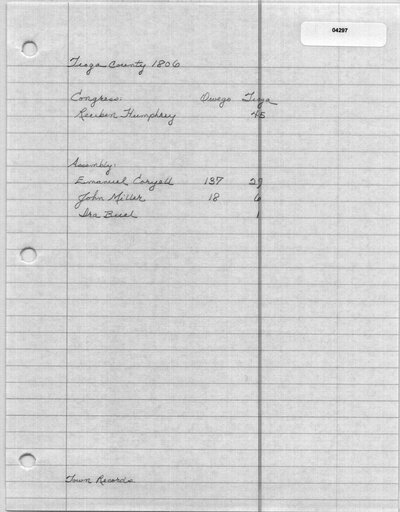 04297
Tioga County 1806
Congress: Owego Tioga
Reuben Humphrey 45
Assembly:
Emanuel Coryell 137 29
John Miller 18 6
Ira Buel 1
Town Records